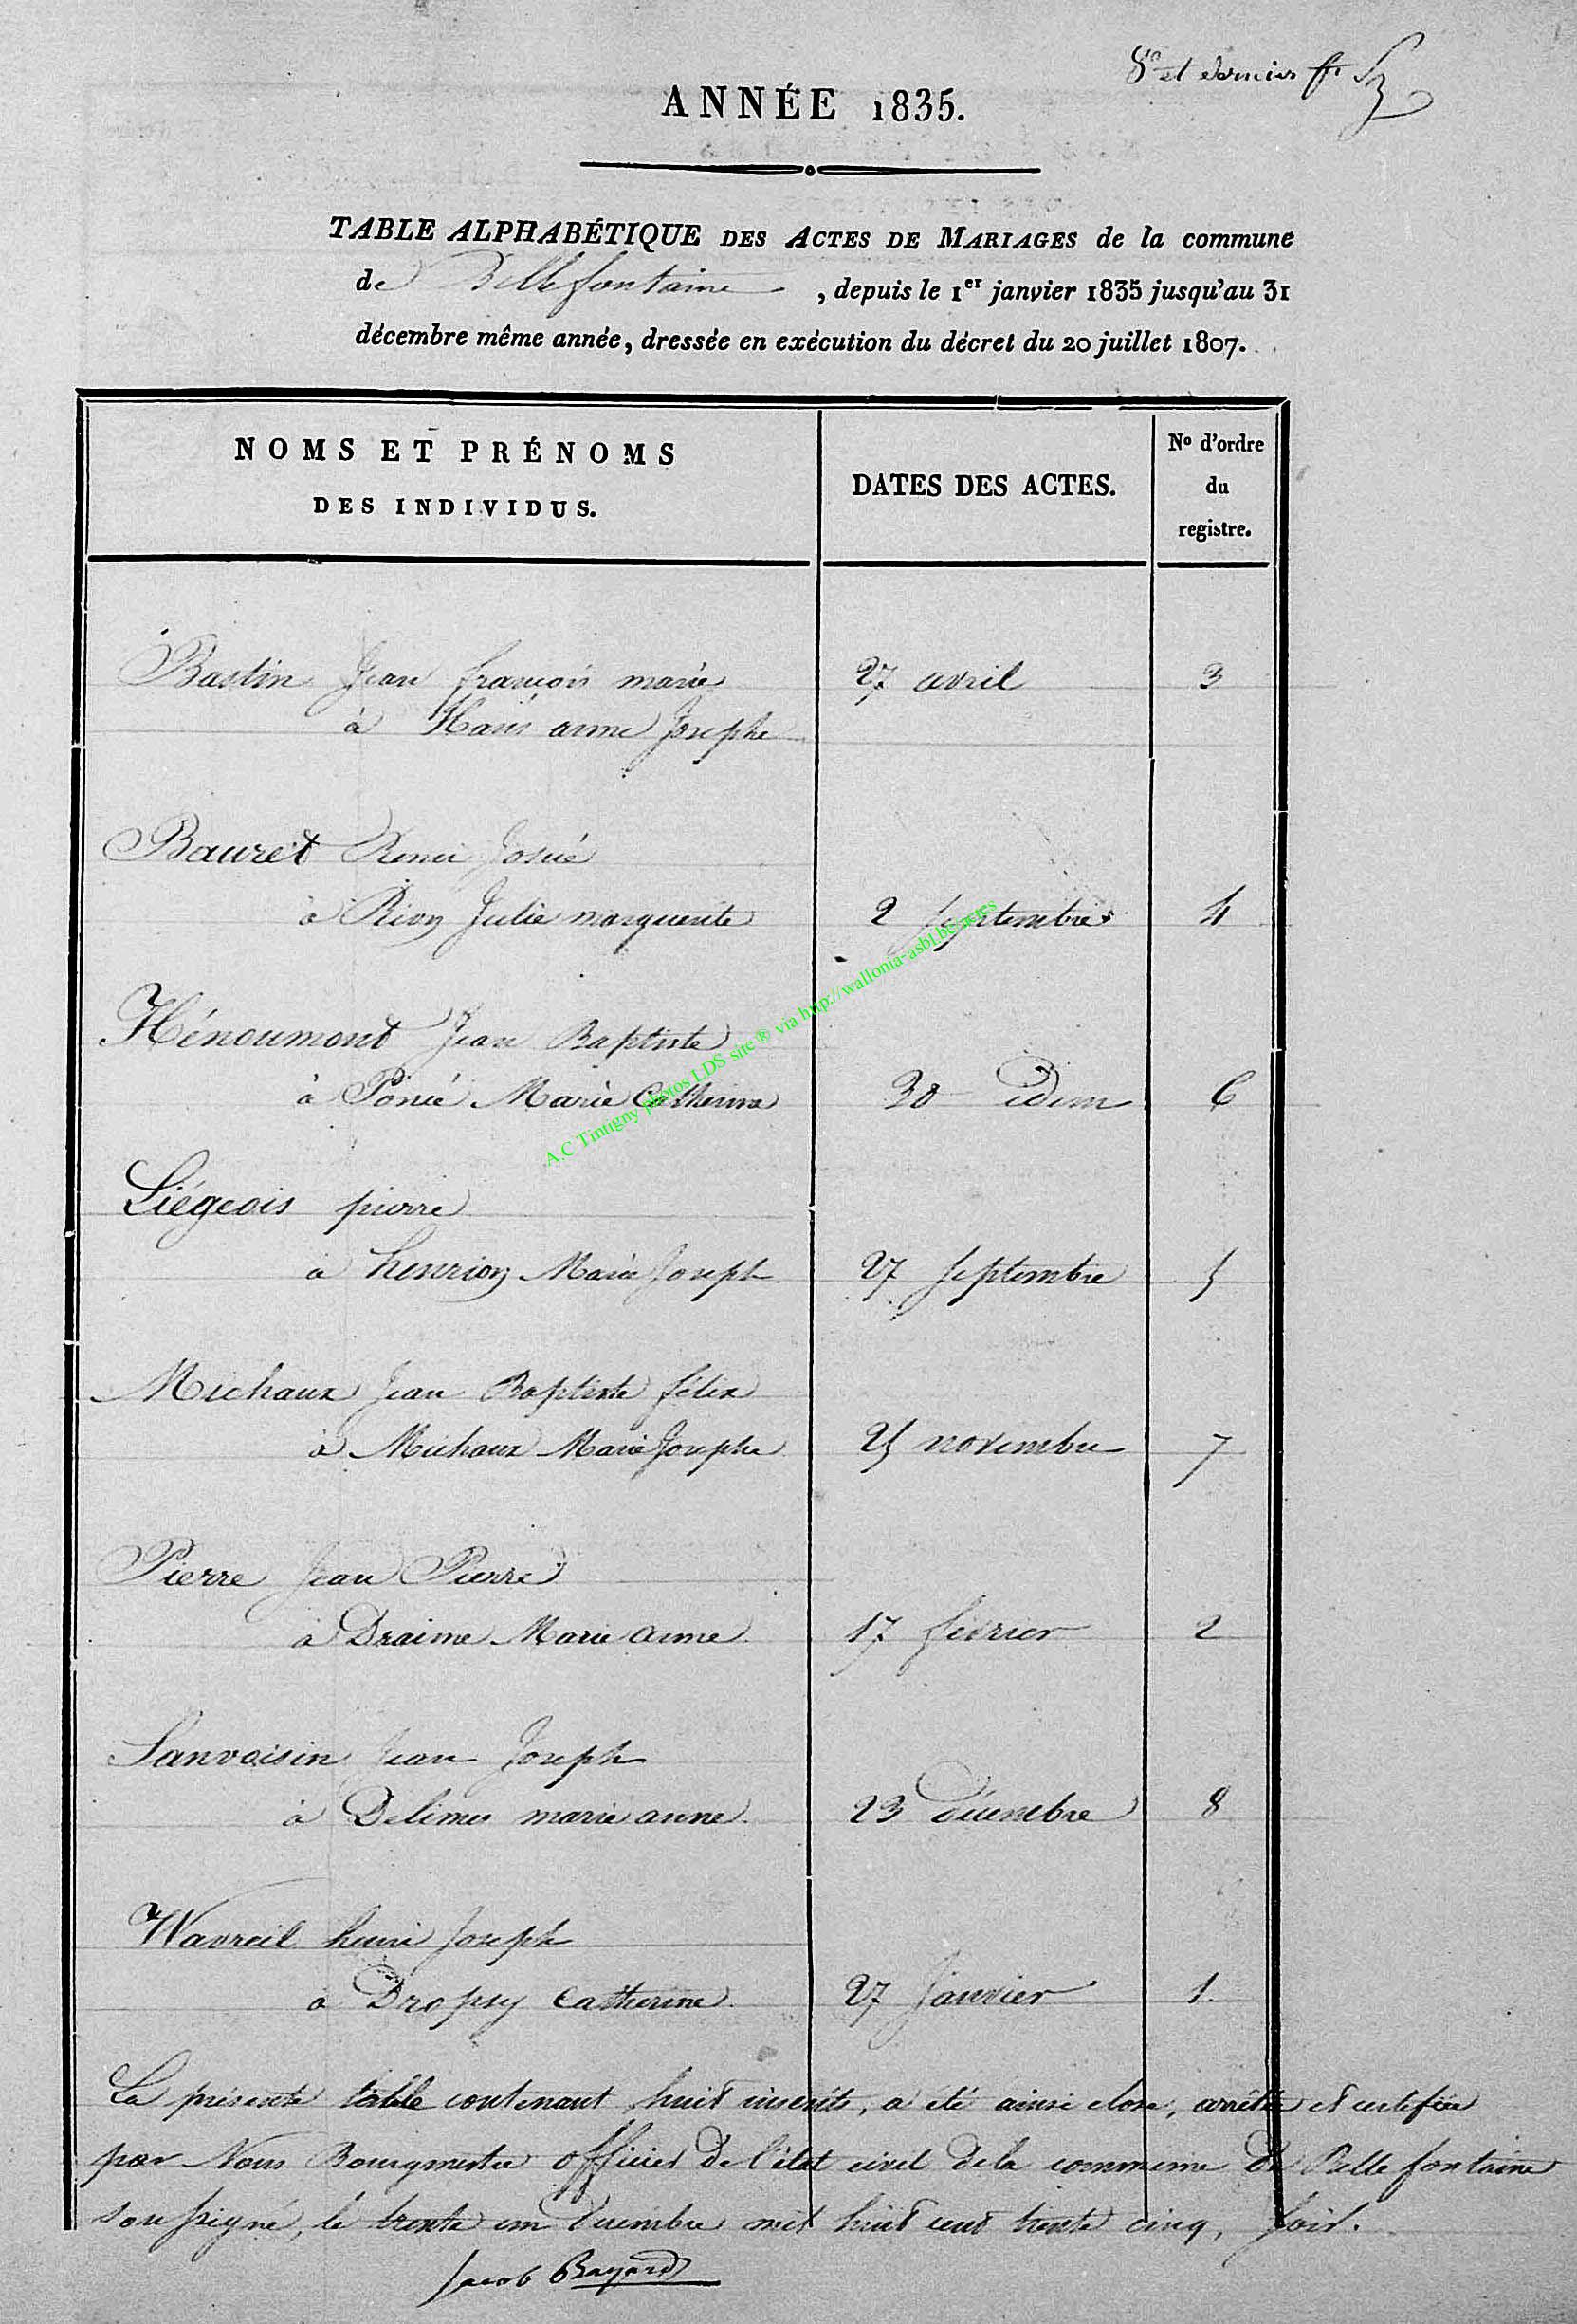 8e et dernier
ANNÉE 1835.
TABLE ALPHABÉTIQUE DES ACTES DE MARIAGES de la commune
de Bellefontaine, depuis le 1er janvier 1835 jusqu'au 31
décembre même année, dressée en exécution du décret du 20 juillet 1807.
NOMS ET PRÉNOMS
DES INDIVIDUS.
DATES DES ACTES.
No d'ordre
du
registre.
Bastin Jean françois marie 27 avril 3
à anne Josephe
Bauret Remi Josué
à Rion Julie marguerite 2 septembre 4
Hénoumont Jean Baptiste
à Marie Catherine 30 idem 6
Liégeois pierre
à henrion Marie Joseph 27 septembre 5
Michaux Jean Baptiste félix
à Michaux Marie Josephe 25 novembre 7
Pierre Jean Pierre
à Draime Marie anne 17 février 2
Sanvoisin Jean Joseph
à Delimes marie anne 23 décembre 8
Wavreil henri Joseph
à Dropsy Catherine 27 Janvier 1.
La présente table contenant huit inscrits, a été ainsi close, arrêtée et certifiée
par Nous Bourgmestre officier de l'état civil de la commune de Belle fontaine
soussigné, le trente un décembre mil huit cent trente cinq, soir.
Jacob Bayard
A.C Tintigny photos LDS site ® via http://wallonia-asbl.be/actes